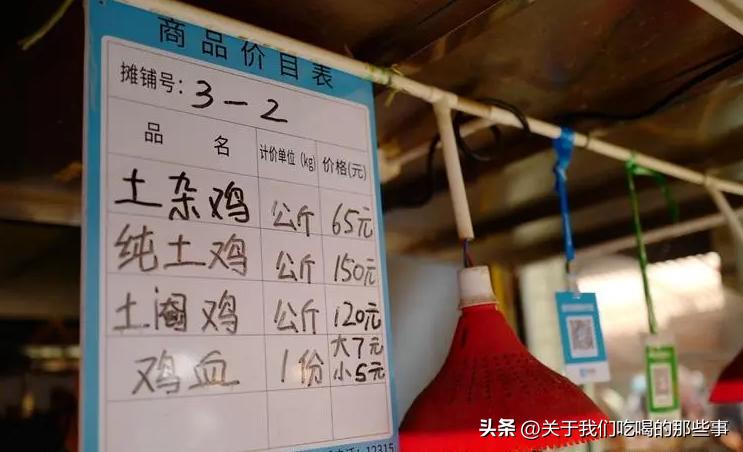 商品价目表
摊铺号：3-2
品名 计价单位(kg) 价格(元)
土杂鸡 公斤 65元
纯土鸡 公斤 150元
土阉鸡 公斤 120元
鸡血 1份 大7元
小5元
12315
头条 @关于我们吃喝的那些事